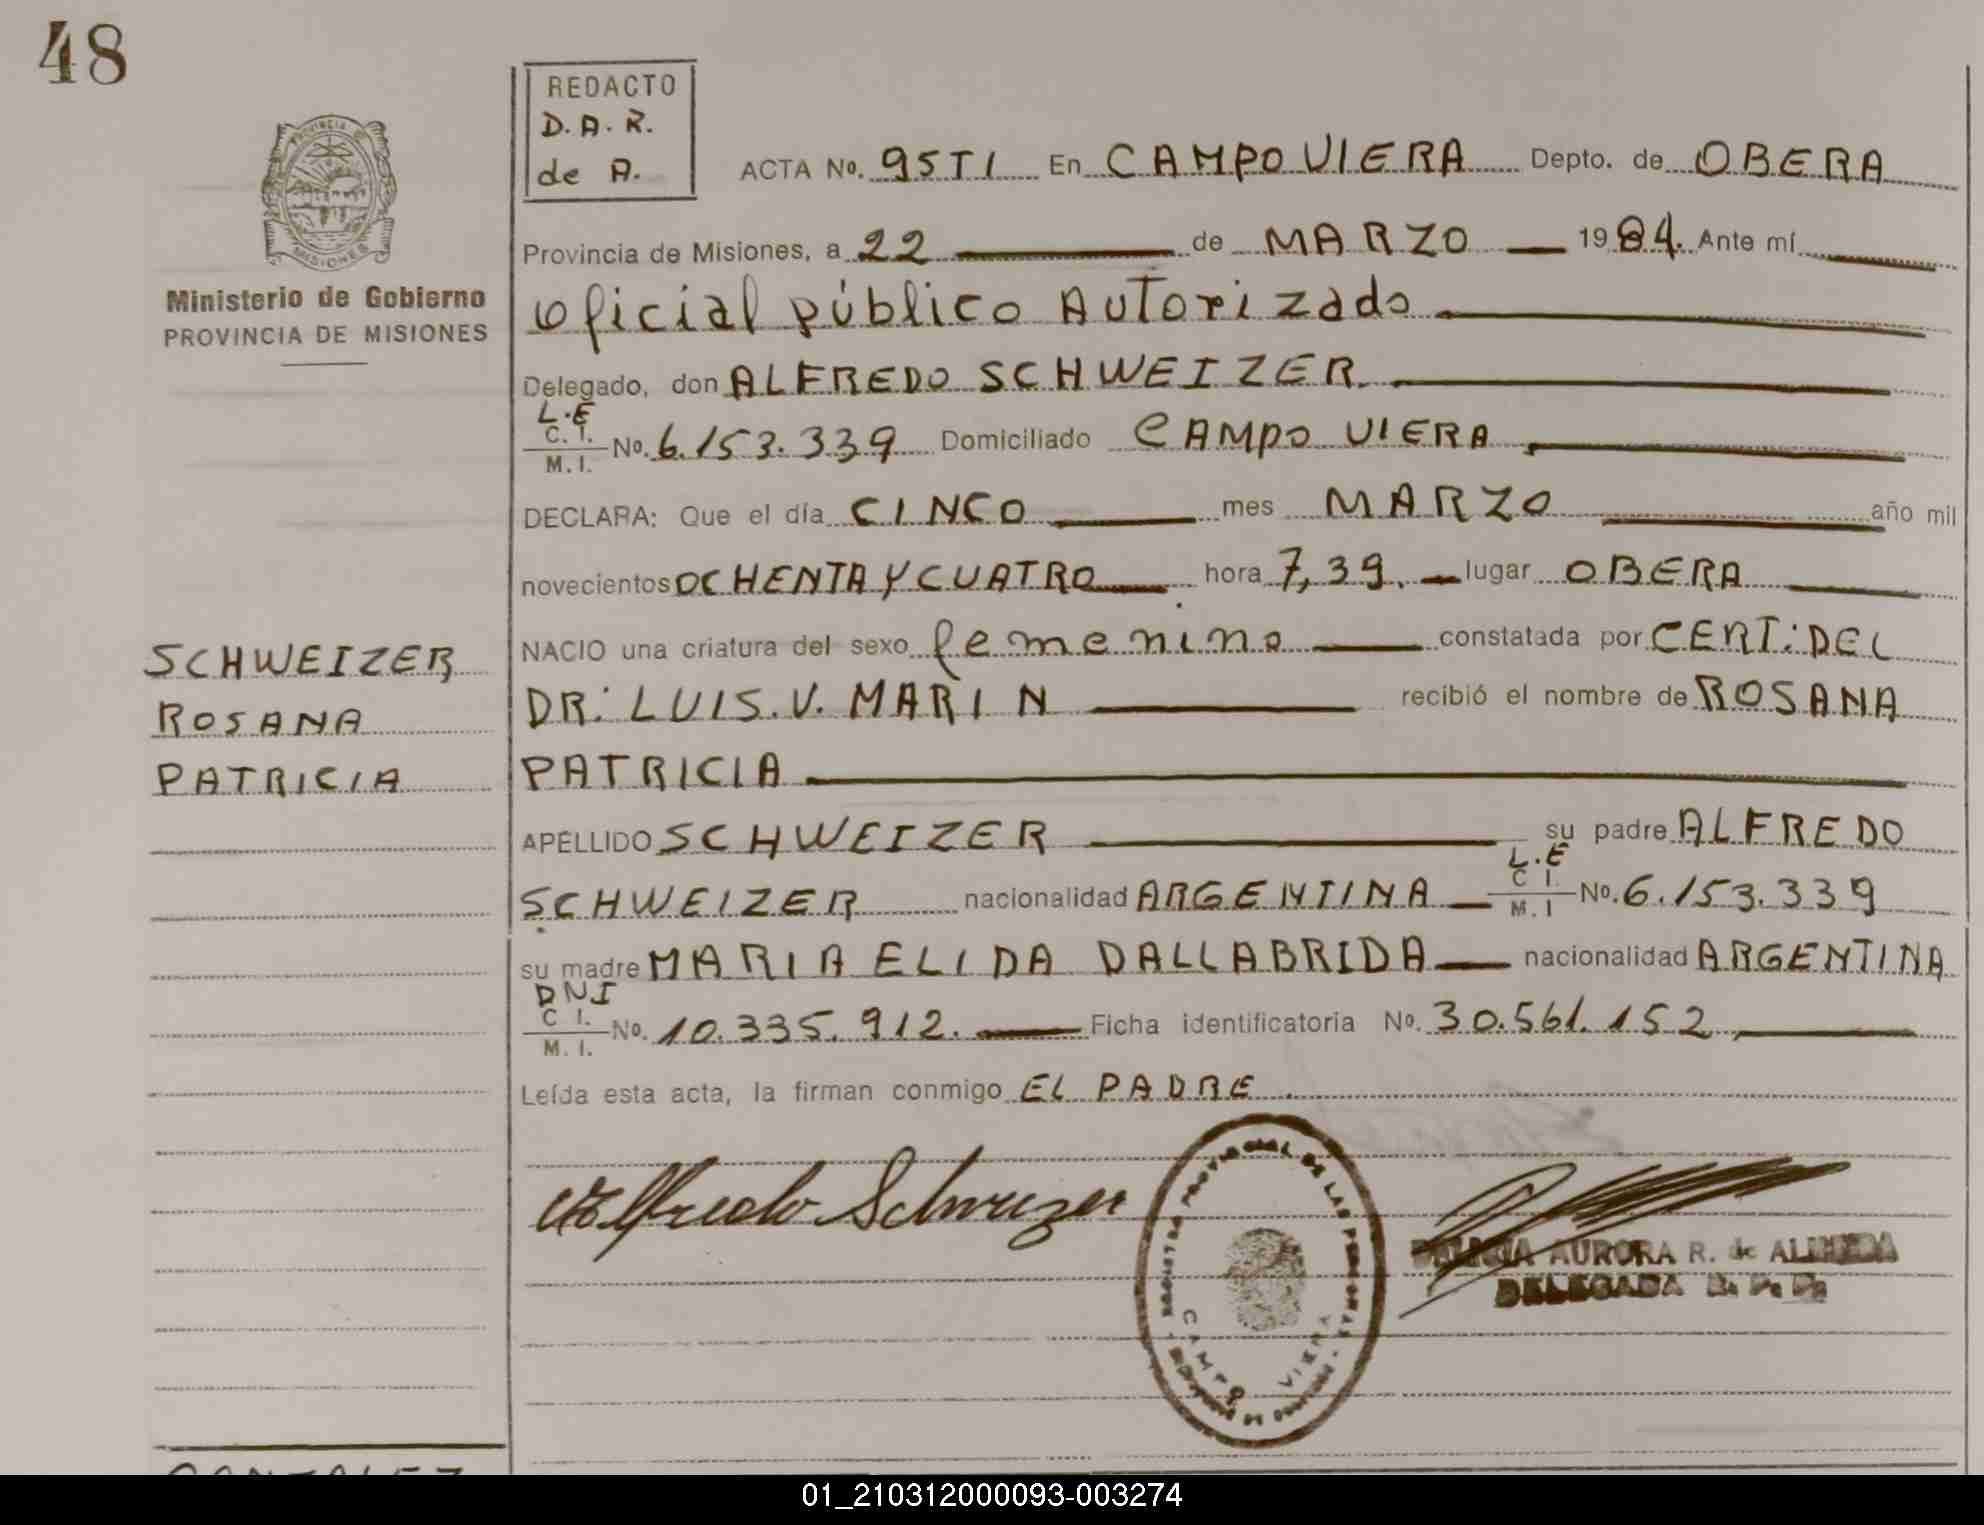 48
REDACTO
D.A.R.
de A.
ACTA No. 95TI En CAMPO VIERA Depto. de OBERA
PROVINCIA DE
MISIONES
Ministerio de Gobierno
PROVINCIA DE MISIONES
Provincia de Misiones, a 22 de MARZO 1984. Ante mí
Oficial público Autorizado
Delegado, don ALFREDO SCHWEIZER.
L.E
C. I.
M. I. No. 6.153.339 Domiciliado CAMPO VIERA
DECLARA: Que el día CINCO mes MARZO año mil
novecientos OCHENTA Y CUATRO hora 7,39. lugar OBERA
NACIO una criatura del sexo femenino constatada por CERT: DEL
DR: LUIS. V. MARIN recibió el nombre de ROSANA
PATRICIA
SCHWEIZER
ROSANA
PATRICIA
APELLIDO SCHWEIZER su padre ALFREDO
SCHWEIZER nacionalidad ARGENTINA L.E C I. M. I No. 6.153.339
su madre MARIA ELIDA DALLABRIDA nacionalidad ARGENTINA
DNI
C I.
M. I. No. 10.335.912. Ficha identificatoria No. 30.561.152
Leída esta acta, la firman conmigo EL PADRE
Alfredo Schweizer
REGISTRO PROVINCIAL DE LAS PERSONAS
CAMPO VIERA
AURORA R. de ALMEIDA
DELEGADA
01_210312000093-003274